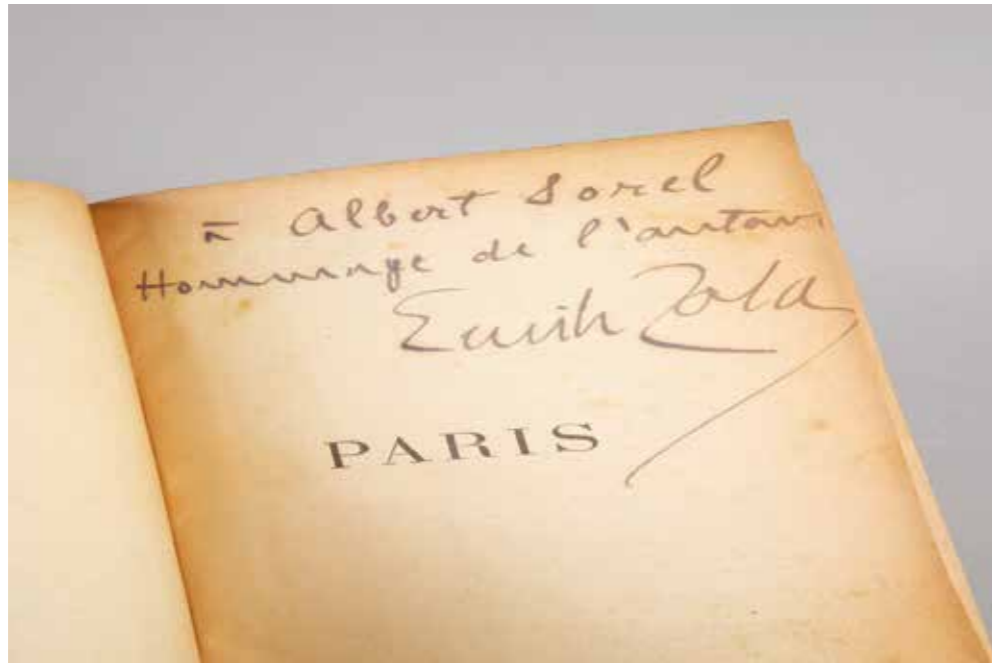 à Albert Sorel
Hommage de l'auteur
Emile Zola
PARIS